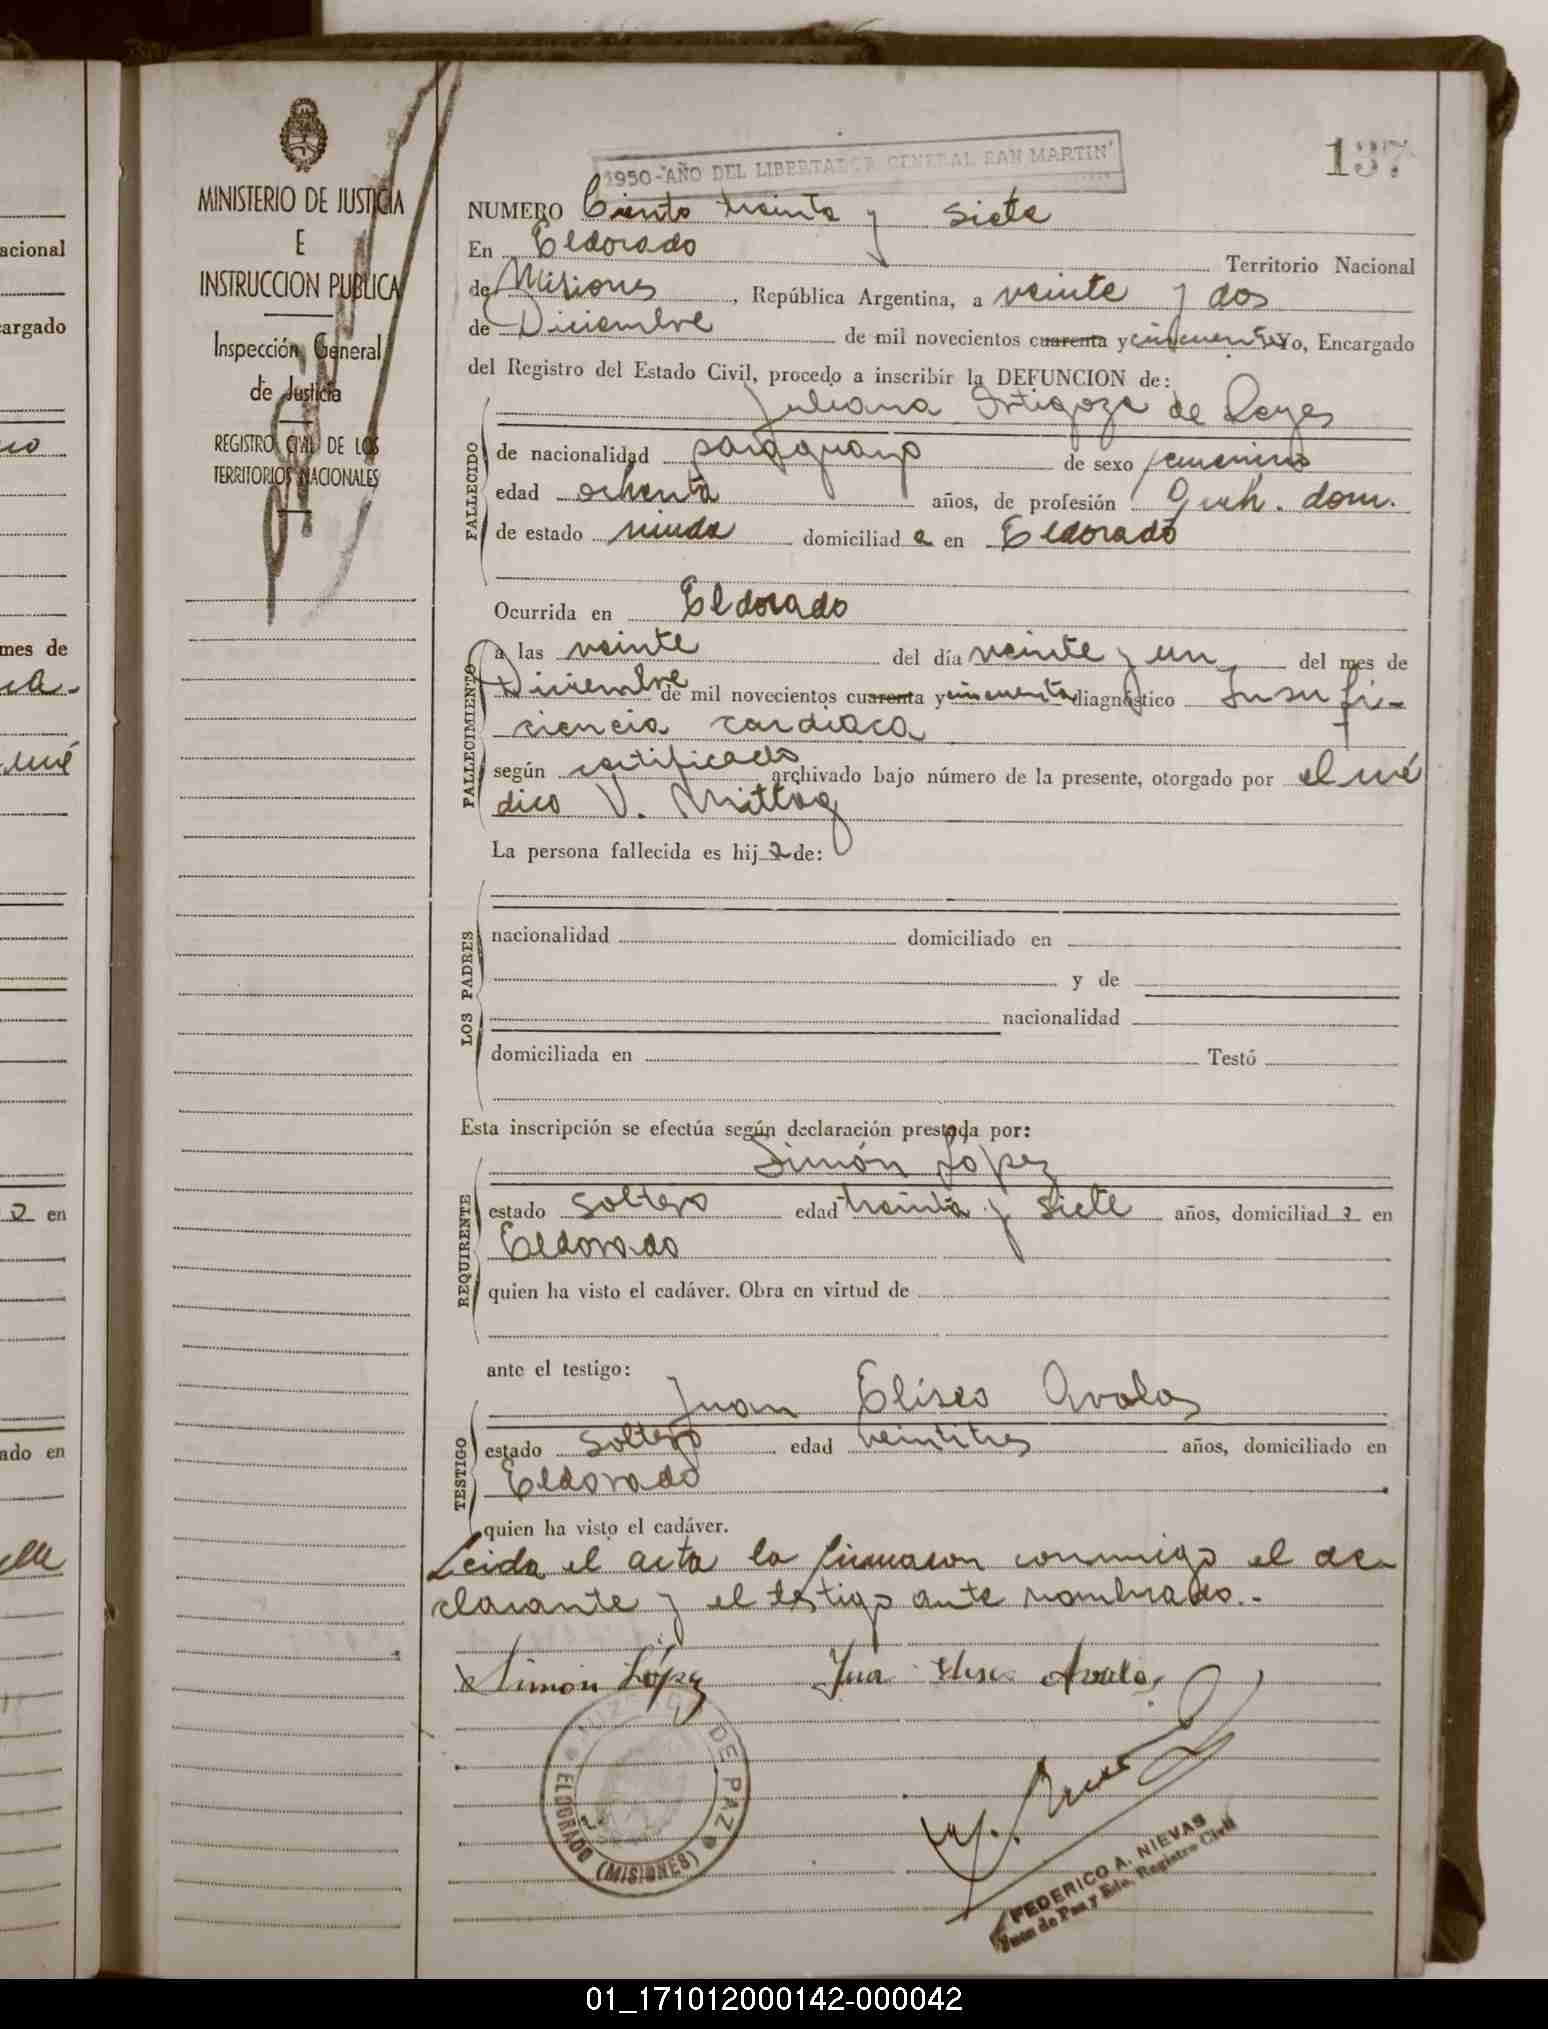 acional
cargado
mes de
mé
2 en
ado en
MINISTERIO DE JUSTICIA
E
INSTRUCCION PUBLICA
Inspección General
de Justicia
REGISTRO CIVIL DE LOS
TERRITORIOS NACIONALES
1950-"AÑO DEL LIBERTADOR GENERAL SAN MARTIN"
137
NUMERO Ciento treinta y siete
En Eldorado Territorio Nacional
de Misiones, República Argentina, a veinte y dos
de Diciembre de mil novecientos cuarenta y cincuenta Yo, Encargado
del Registro del Estado Civil, procedo a inscribir la DEFUNCION de:
Juliana Ortigoza de Reyes
FALLECIDO
de nacionalidad paraguaya de sexo femenino
edad ochenta años, de profesión Queh. dom.
de estado viuda domiciliad a en Eldorado
Ocurrida en Eldorado
FALLECIMIENTO
a las veinte del día veinte y un del mes de
Diciembre de mil novecientos cuarenta y cincuenta diagnóstico Insufi-
ciencia cardiaca
según certificado archivado bajo número de la presente, otorgado por el mé
dico V. Mittag
La persona fallecida es hij a de:
LOS PADRES
nacionalidad domiciliado en
y de
nacionalidad
domiciliada en Testó
Esta inscripción se efectúa según declaración prestada por:
Simón López
REQUIRENTE
estado soltero edad treinta y siete años, domiciliad o en
Eldorado
quien ha visto el cadáver. Obra en virtud de
ante el testigo:
Juan Eliseo Avalos
TESTIGO
estado soltero edad veintitres años, domiciliado en
Eldorado
quien ha visto el cadáver.
Leida el acta la firmaron conmigo el de-
clarante y el testigo ante nombrado.-
Simón López Juan Eliseo Avalos
JUZGADO DE PAZ
ELDORADO (MISIONES)
FEDERICO A. NIEVAS
Juez de Paz y Edo. Registro Civil
01_171012000142-000042